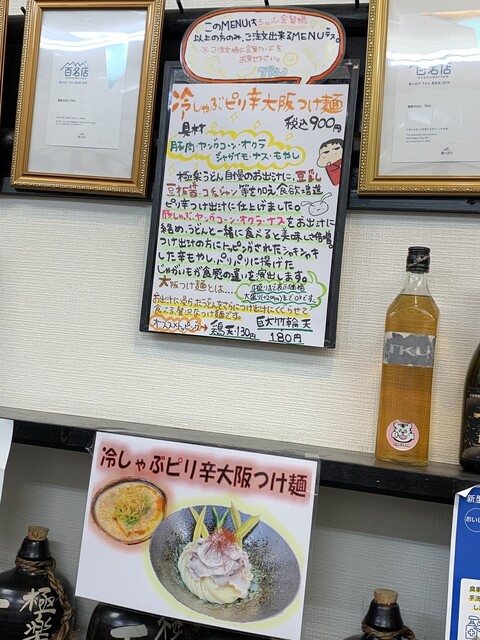 このMENUはシルバー会員様
以上の方のみ、ご注文出来るMENUデス。
※ご注文時に会員カードを
お見せ下さい。
TKU
冷しゃぶピリ辛大阪つけ麺
税込900円
具材
豚肉・ヤングコーン・オクラ
ジャガイモ・ナス・もやし
極楽うどん自慢のお出汁に、豆乳
豆板醤・コチュジャン等を加え食欲増進
ピリ辛つけ出汁に仕上げました。
豚しゃぶ・ヤングコーン・オクラ・ナスをお出汁に
絡め、うどんと一緒に食べると美味しさ倍増。
つけ出汁の方にトッピングされたシャキシャキ
した辛もやし、パリパリに揚げた
じゃがいもが食感の違いを演出します。
大阪つけ麺とは…
お出汁に浸かったうどんをさらにつけ出汁にくぐらせて
食べる贅沢なつけ麺です。
オススメトッピング→
鶏天130円
巨大竹輪天
180円
百名店
百名店
TKU
冷しゃぶピリ辛大阪つけ麺
極楽